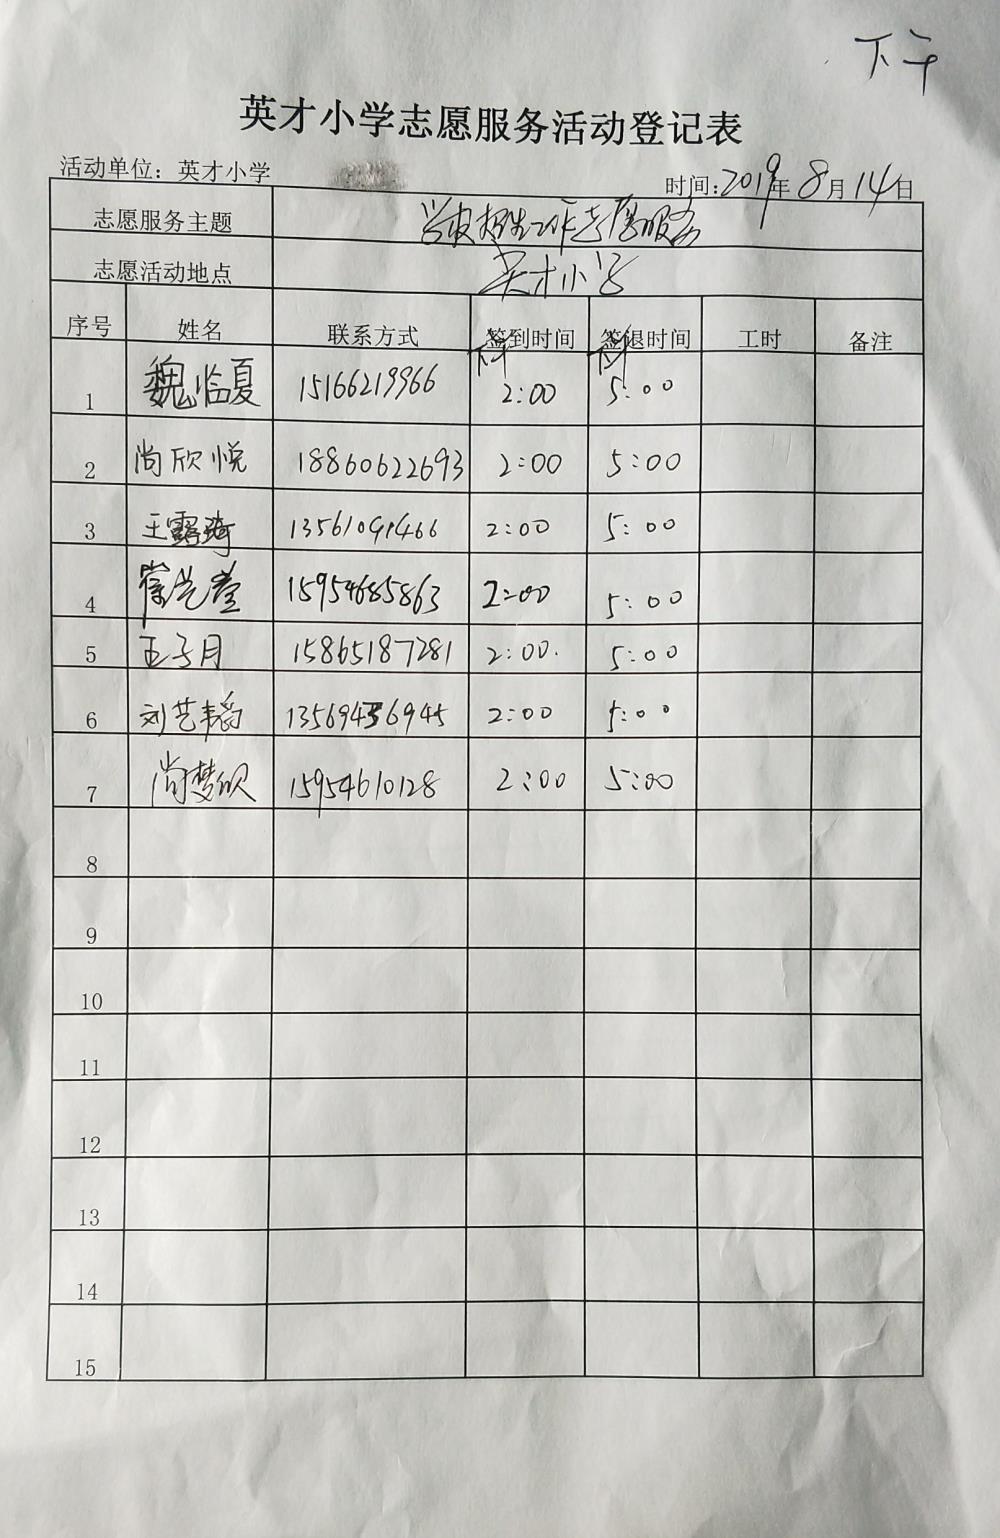 下午
英才小学志愿服务活动登记表
活动单位：英才小学 时间：2019年8月14日
志愿服务主题 学校招生工作志愿服务
志愿活动地点 英才小学
序号 姓名 联系方式 签到时间 签退时间 工时 备注
下午 下午
1 魏临夏 15166219966 2:00 5:00
2 尚欣悦 18860622693 2:00 5:00
3 王露琦 13561091466 2:00 5:00
4 15954685863 2:00 5:00
5 王子月 15865187281 2:00. 5:00
6 刘艺韬 2:00 5:00
7 尚梦欣 15954610128 2:00 5:00
8
9
10
11
12
13
14
15